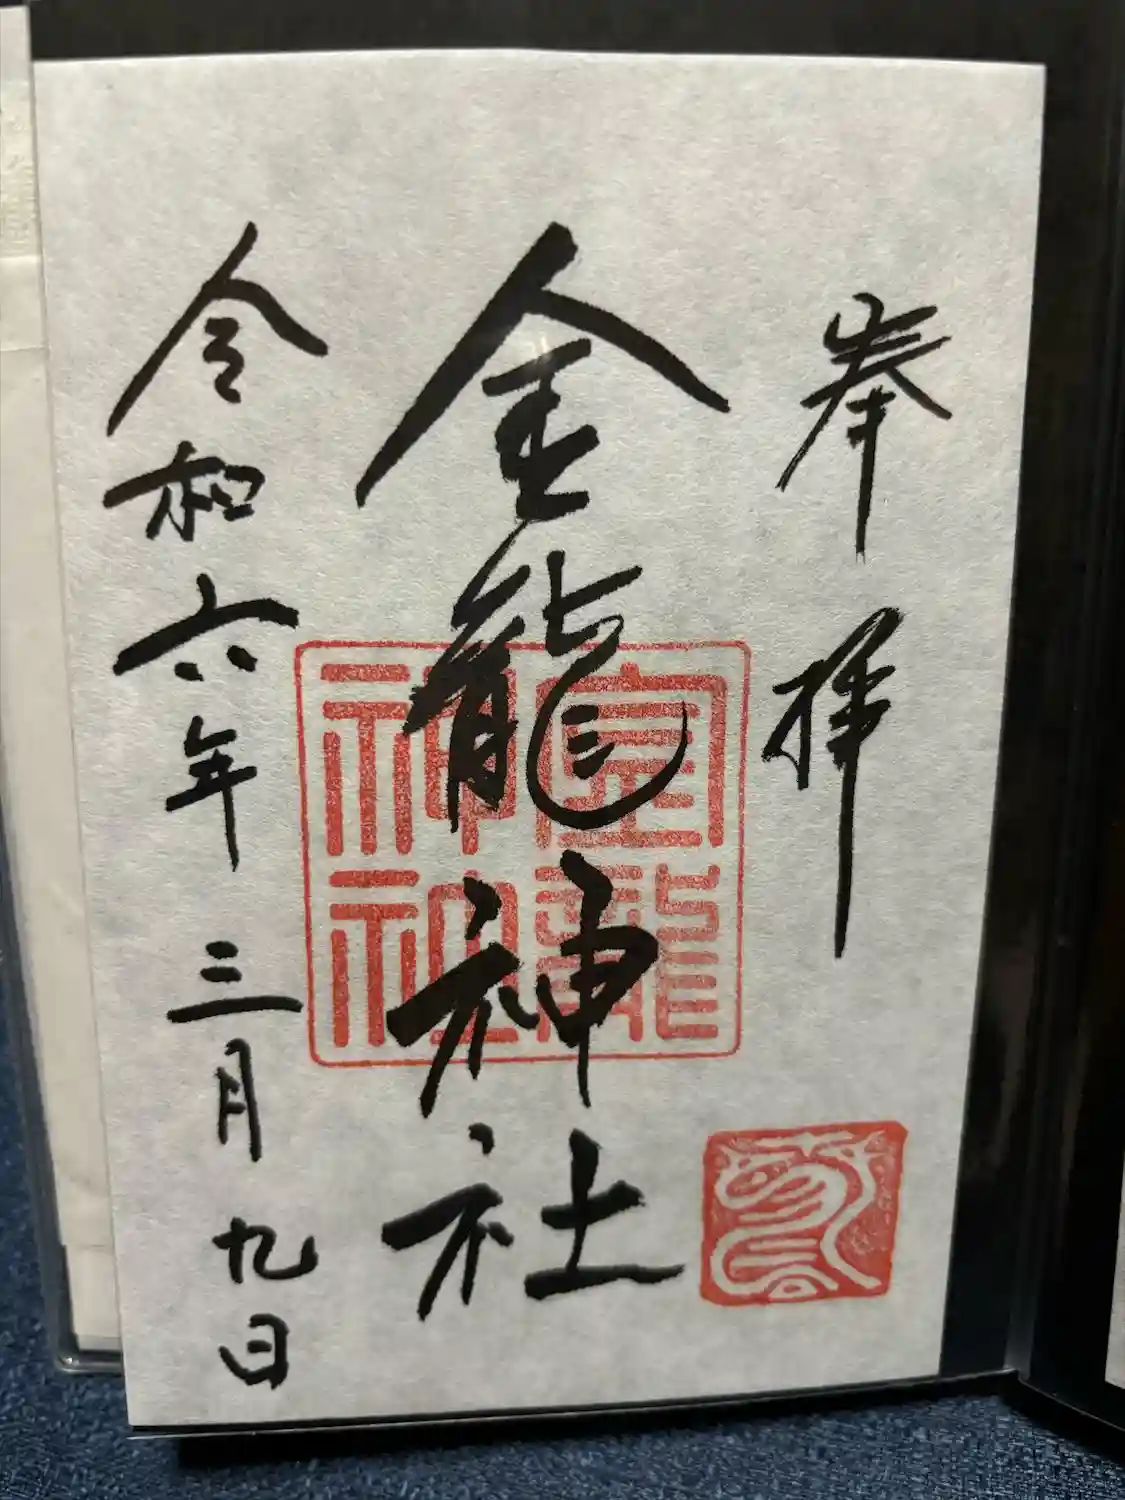 奉拝
金龍神社
令和六年三月九日
金龍神社